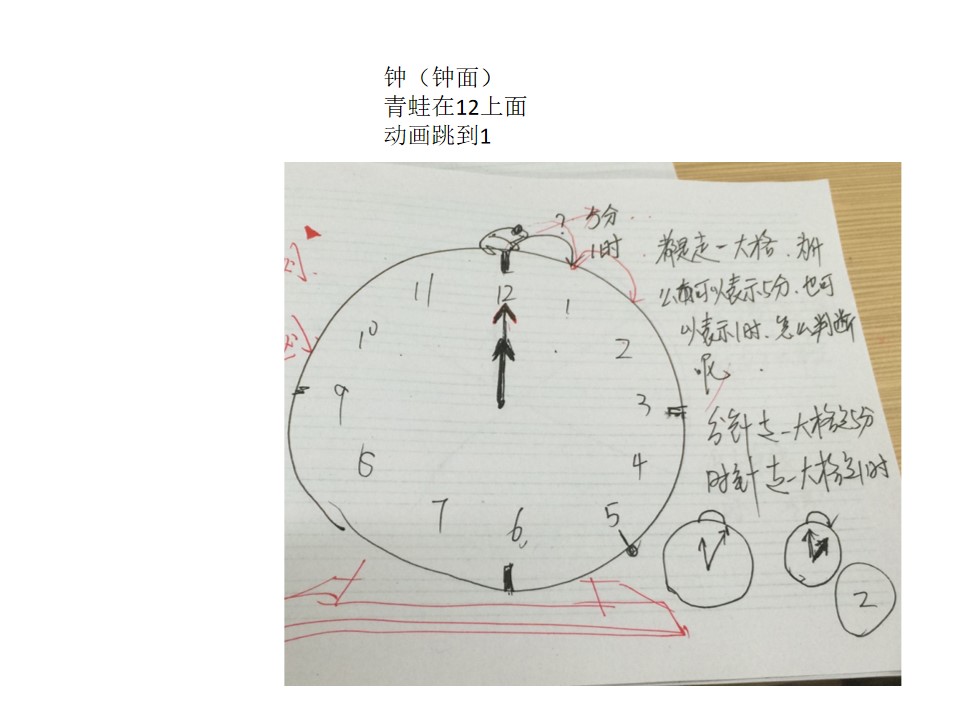 钟（钟面）
青蛙在12上面
动画跳到1
? 5分..
1时
都是走一大格.为什
么有可以表示5分.也可
以表示1时.怎么判断
呢.
分针走一大格是5分
时针走一大格是1时
12
1
2
3
4
5
6
7
8
9
10
11
2